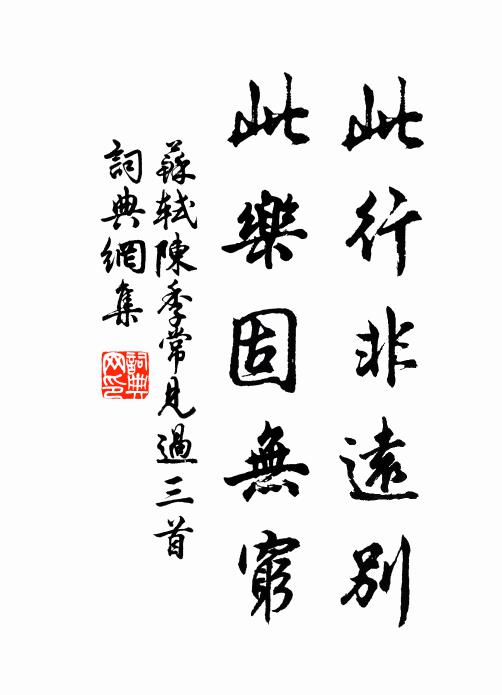 此行非遠別
此樂固無窮
蘇軾陳季常見過三首
詞典網集
詞典網印